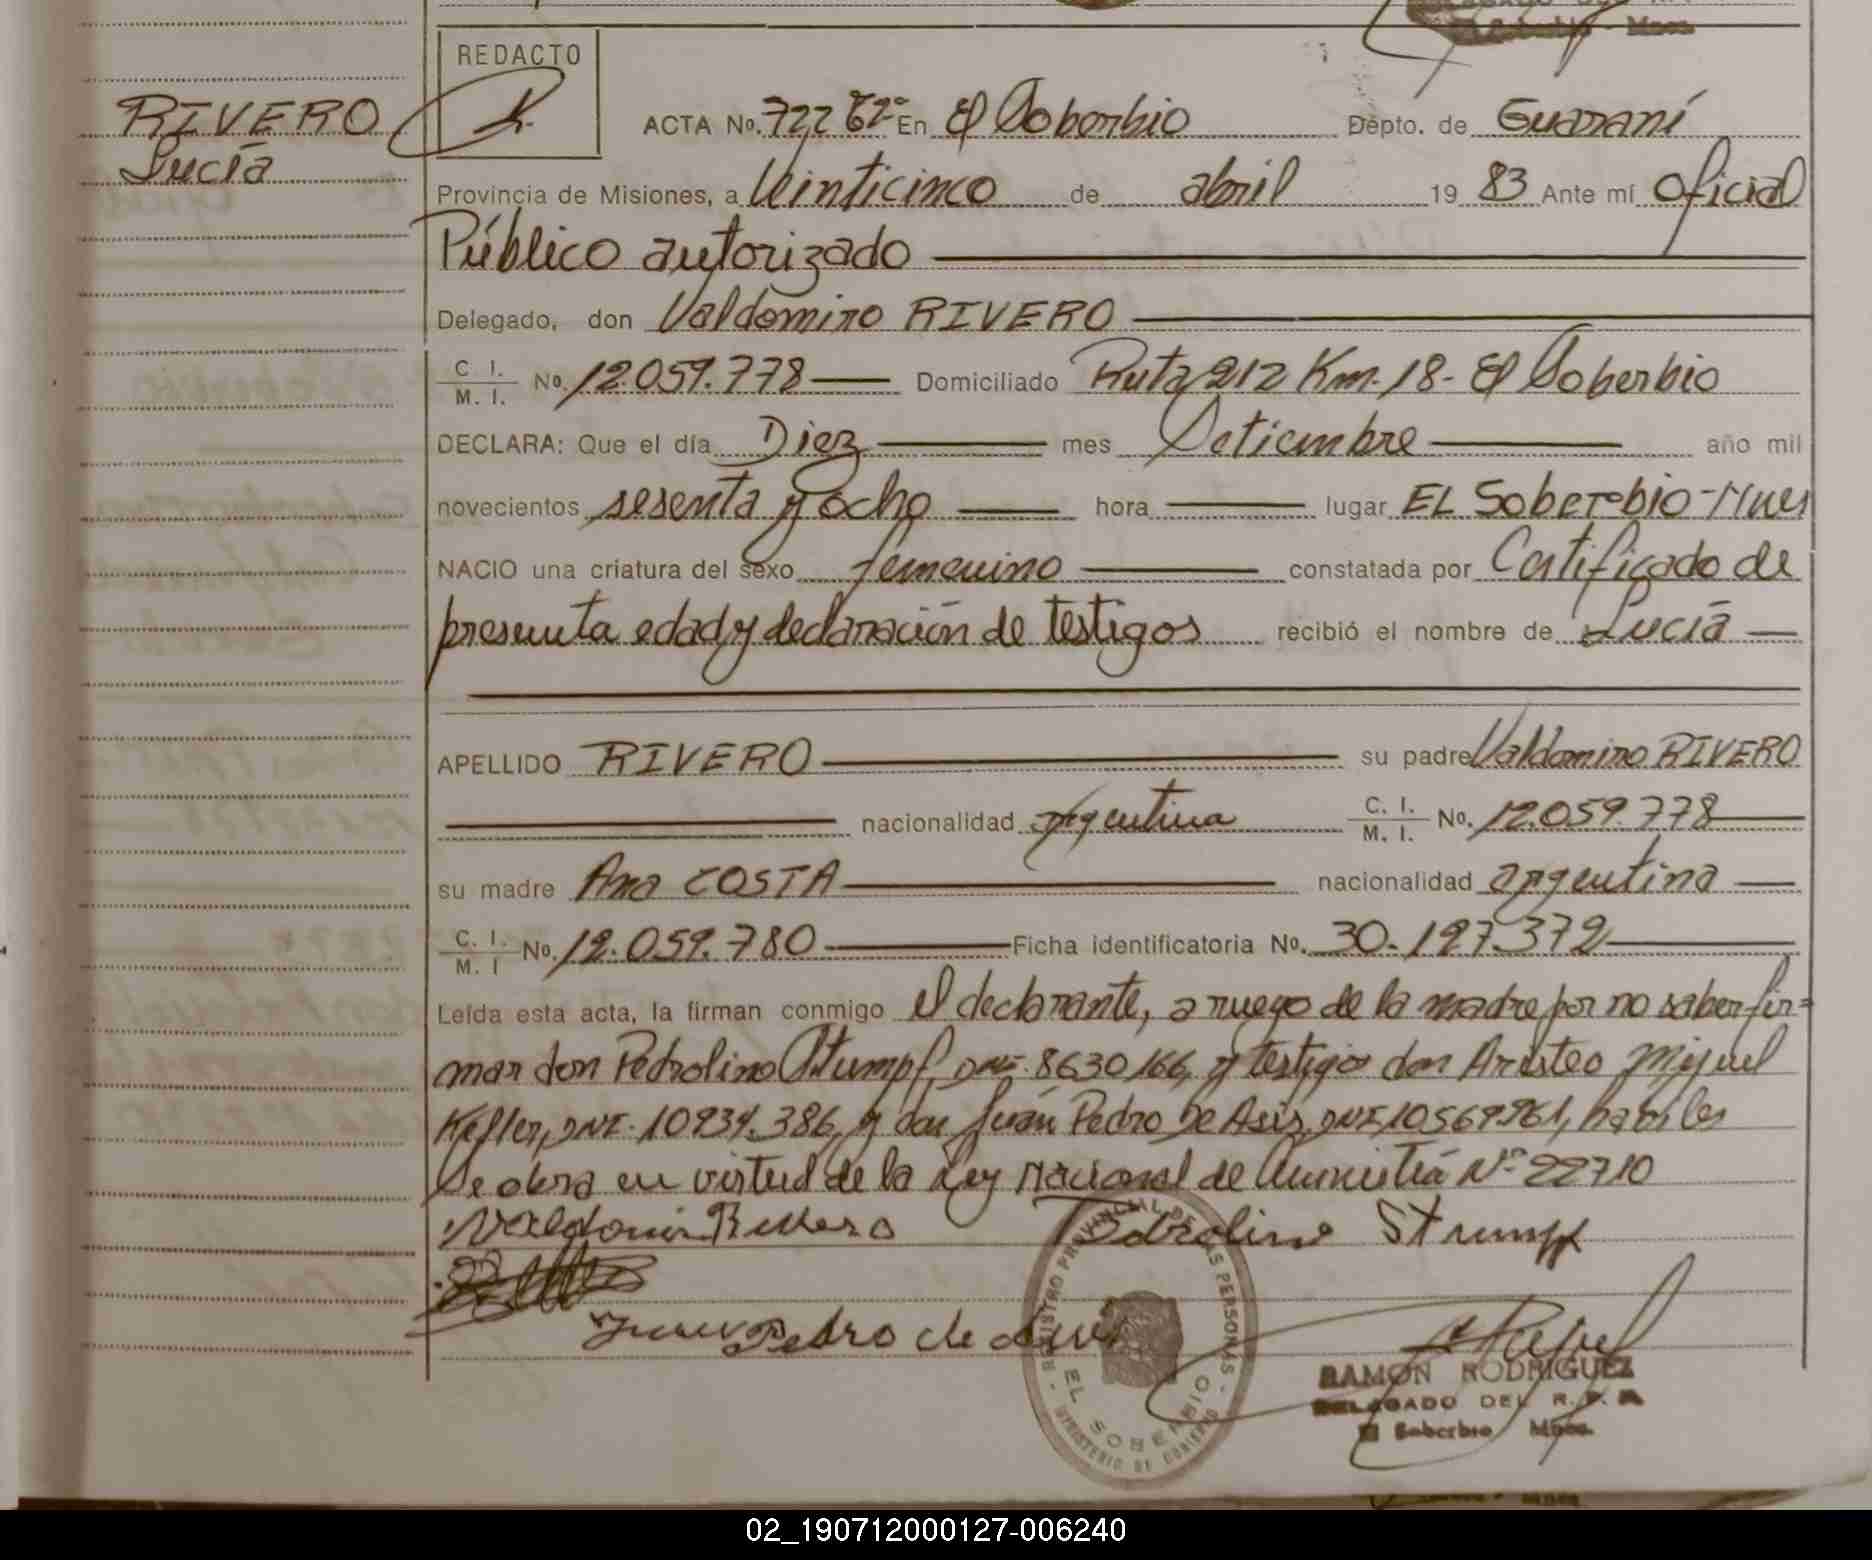 REDACTO
RIVERO
Lucía
ACTA No. 722 62º En El Soberbio Depto. de Guaraní
Provincia de Misiones, a Veinticinco de abril 19 83 Ante mí Oficial
Público autorizado
Delegado, don Valdomiro RIVERO
C. I. / M. I. No. 12.059.778 Domiciliado Ruta 212 Km. 18 - El Soberbio
DECLARA: Que el día Diez mes Setiembre año mil
novecientos sesenta y ocho hora lugar EL Soberbio - Mnes
NACIO una criatura del sexo femenino constatada por Certificado de
presunta edad y declaración de testigos recibió el nombre de Lucía
APELLIDO RIVERO su padre Valdomiro RIVERO
nacionalidad argentina C. I. / M. I. No. 12.059.778
su madre Ana COSTA nacionalidad argentina
C. I. / M. I No. 12.059.780 Ficha identificatoria No. 30.127.372
Leída esta acta, la firman conmigo el declarante, a ruego de la madre por no saber fir=
mar don Pedrolino Strumpf, DNI. 8630166, y testigo don Aristeo Miguel
Keffer, DNI. 10934.386, y don Juán Pedro De Asis, DNI 10569961, habiles
Se obra en virtud de la Ley Nacional de Amnistía Nº 22710
Pedrolino Strumpf
Juan Pedro de
REGISTRO PROVINCIAL DE LAS PERSONAS
EL SOBERBIO
MINISTERIO DE GOBIERNO
RAMON RODRIGUEZ
DELEGADO DEL R. P. P.
El Soberbio Mnes.
02_190712000127-006240